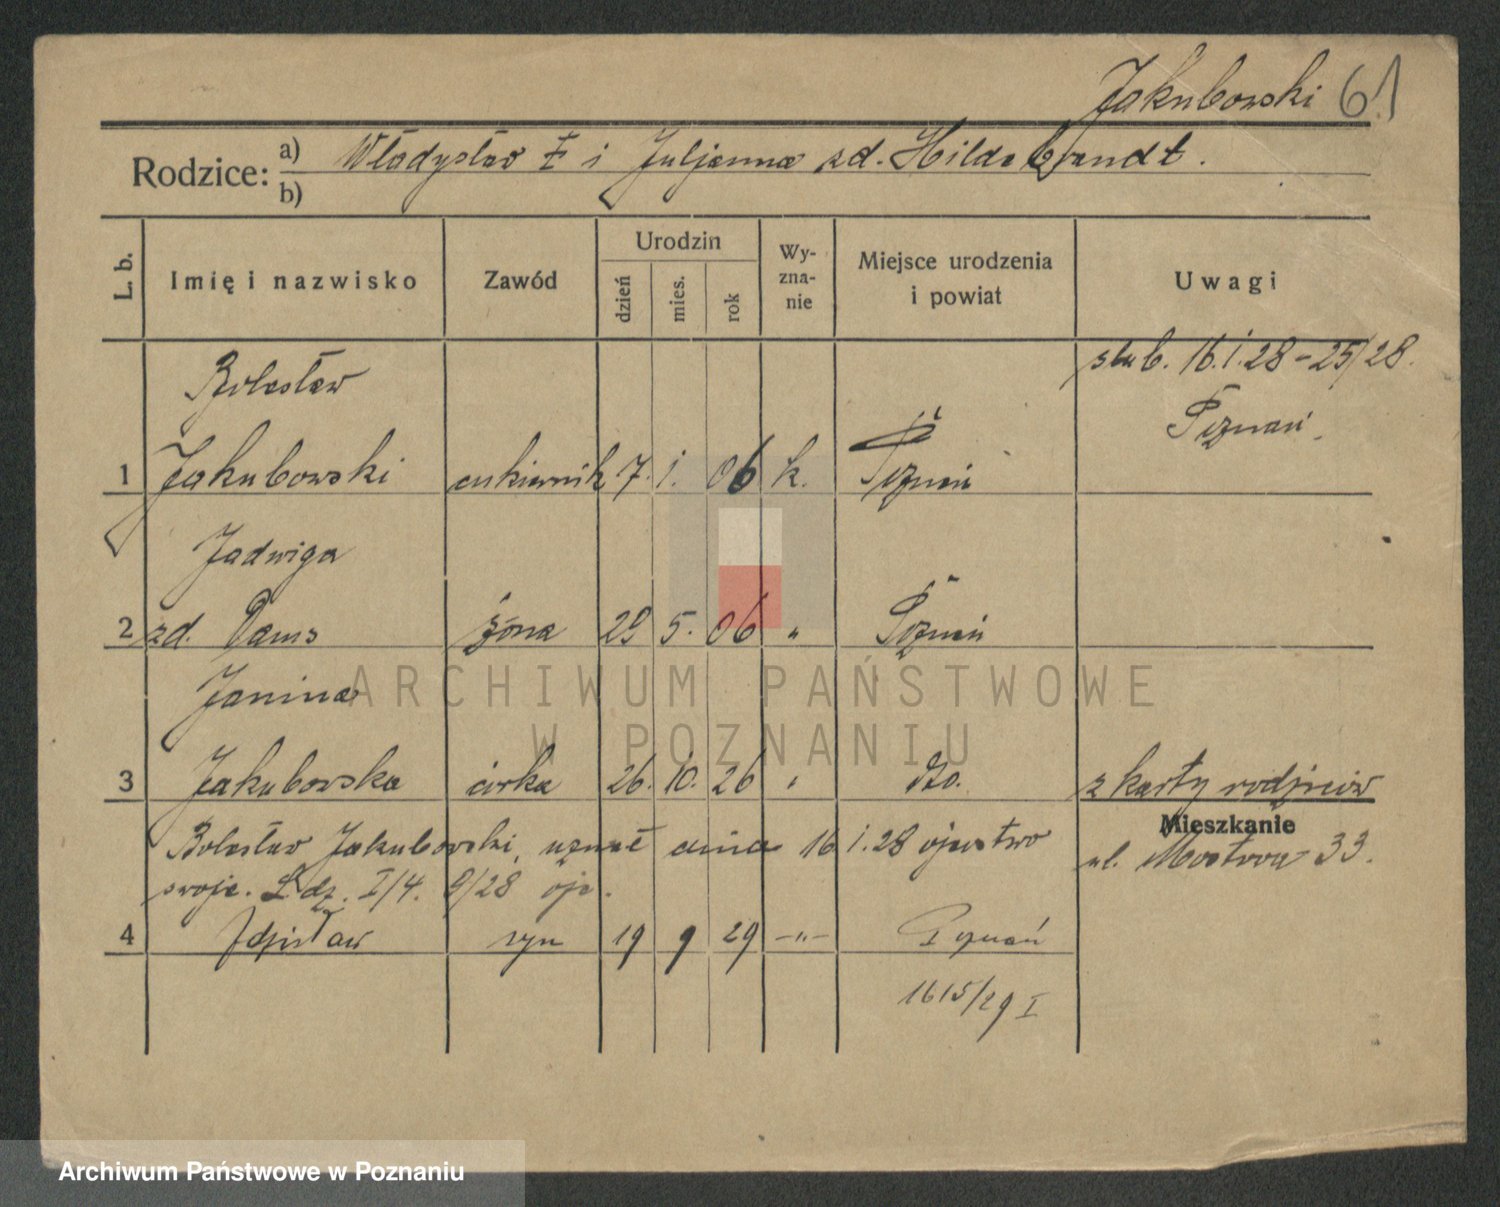 Jakubowski 61
Rodzice: a) Władysław I i Juljanna zd. Hildebrandt.
b)
L. b.
Imię i nazwisko
Zawód
Urodzin
dzień
mies.
rok
Wy-
zna-
nie
Miejsce urodzenia
i powiat
Uwagi
Bolesław
ślub. 16.1.28 - 25/28.
Poznań.
1 Jakubowski cukiernik 7. 1. 06 k. Poznań
Jadwiga
2 zd. Dams żona 29 5. 06 " Poznań
Janina
3 Jakubowska córka 26. 10. 26 " dto. z karty rodziców
Mieszkanie
ul. Mostowa 33.
Bolesław Jakubowski, uznał dnia 16 1.28 ojcostwo
swoje. L. dz. I/4. 9/28 ojc.
4 Zdzisław syn 19 9 29 -"- Poznań
1615/29 I
ARCHIWUM PAŃSTWOWE
W POZNANIU
Archiwum Państwowe w Poznaniu